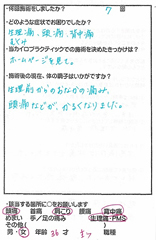 ・何回施術をしましたか？ 7 回
・どのような症状でお困りでしたか？
生理痛、頭痛、背中痛
むくみ
・当カイロプラクティックでの施術を決めたきっかけは？
ホームページを見て。
・施術後の現在、体の調子はいかがですか？
生理前からのおなかの痛み、
頭痛などが、かるくなりました。
・該当する箇所に○をお願いします
頭痛 首痛 肩こり 腰痛 背中痛
めまい 手／足の痛み 生理痛・PMS
男・女 年齢 36 才 職種